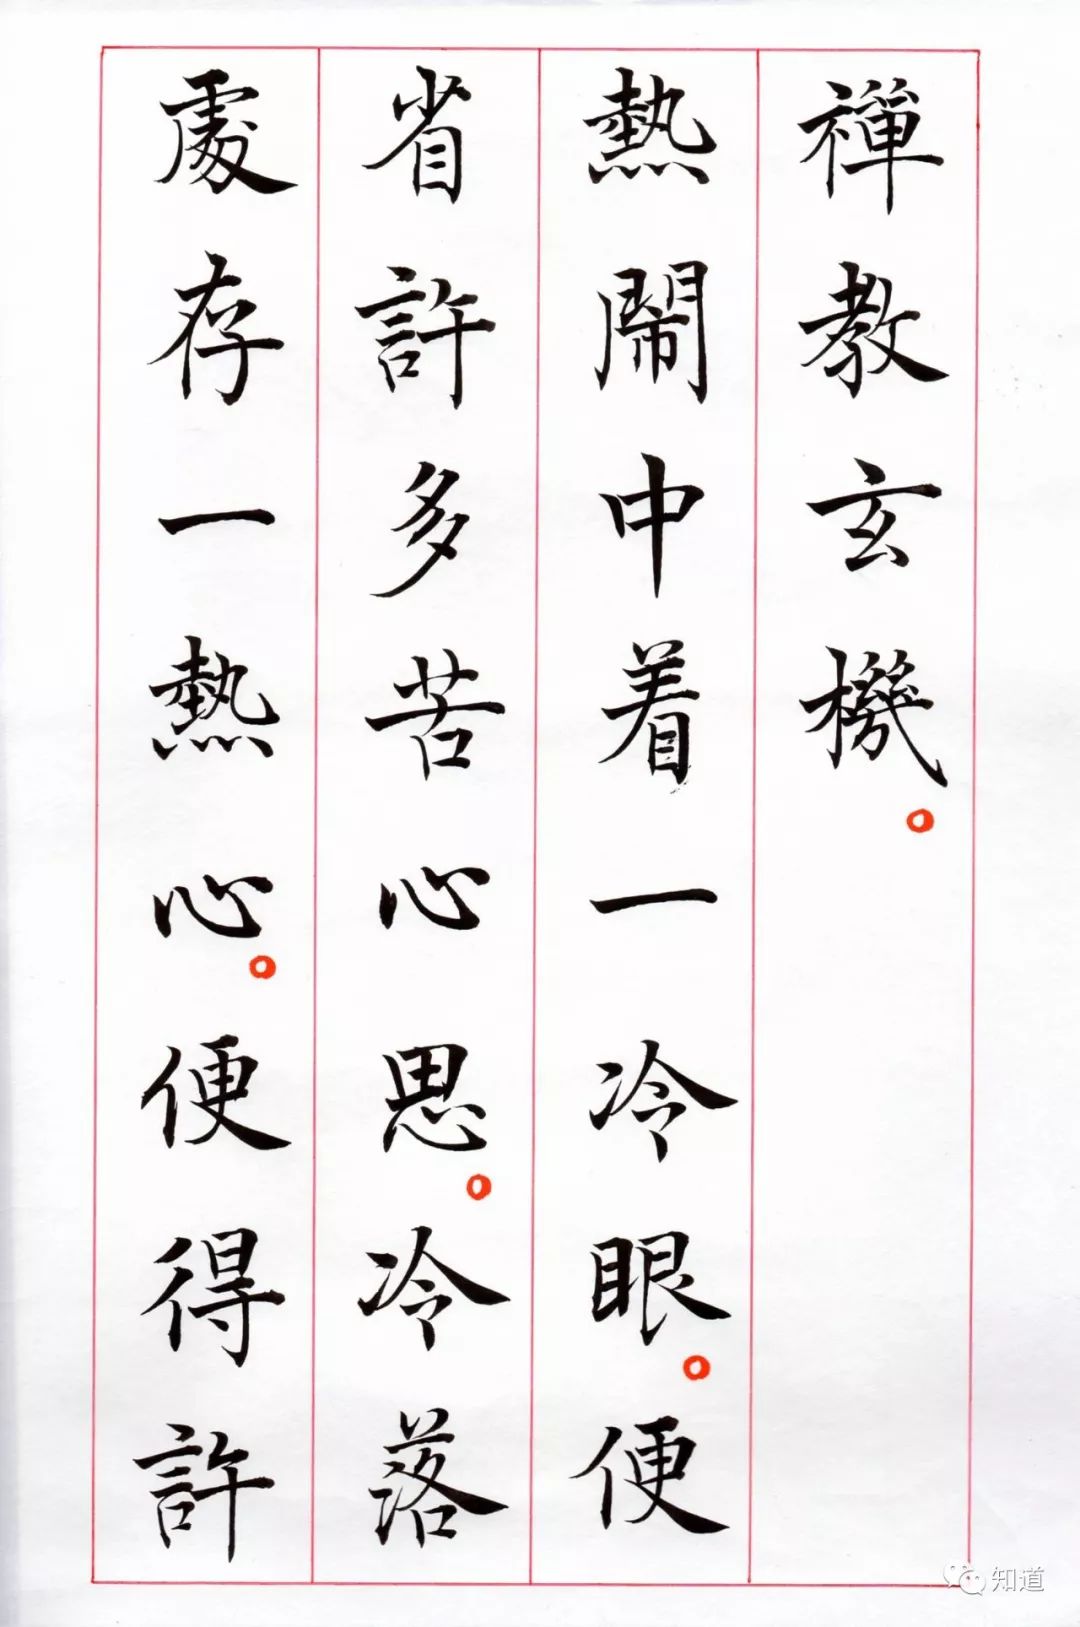 禪教玄機。
熱鬧中着一冷眼。便
省許多苦心思。冷落
處存一熱心。便得許
知道